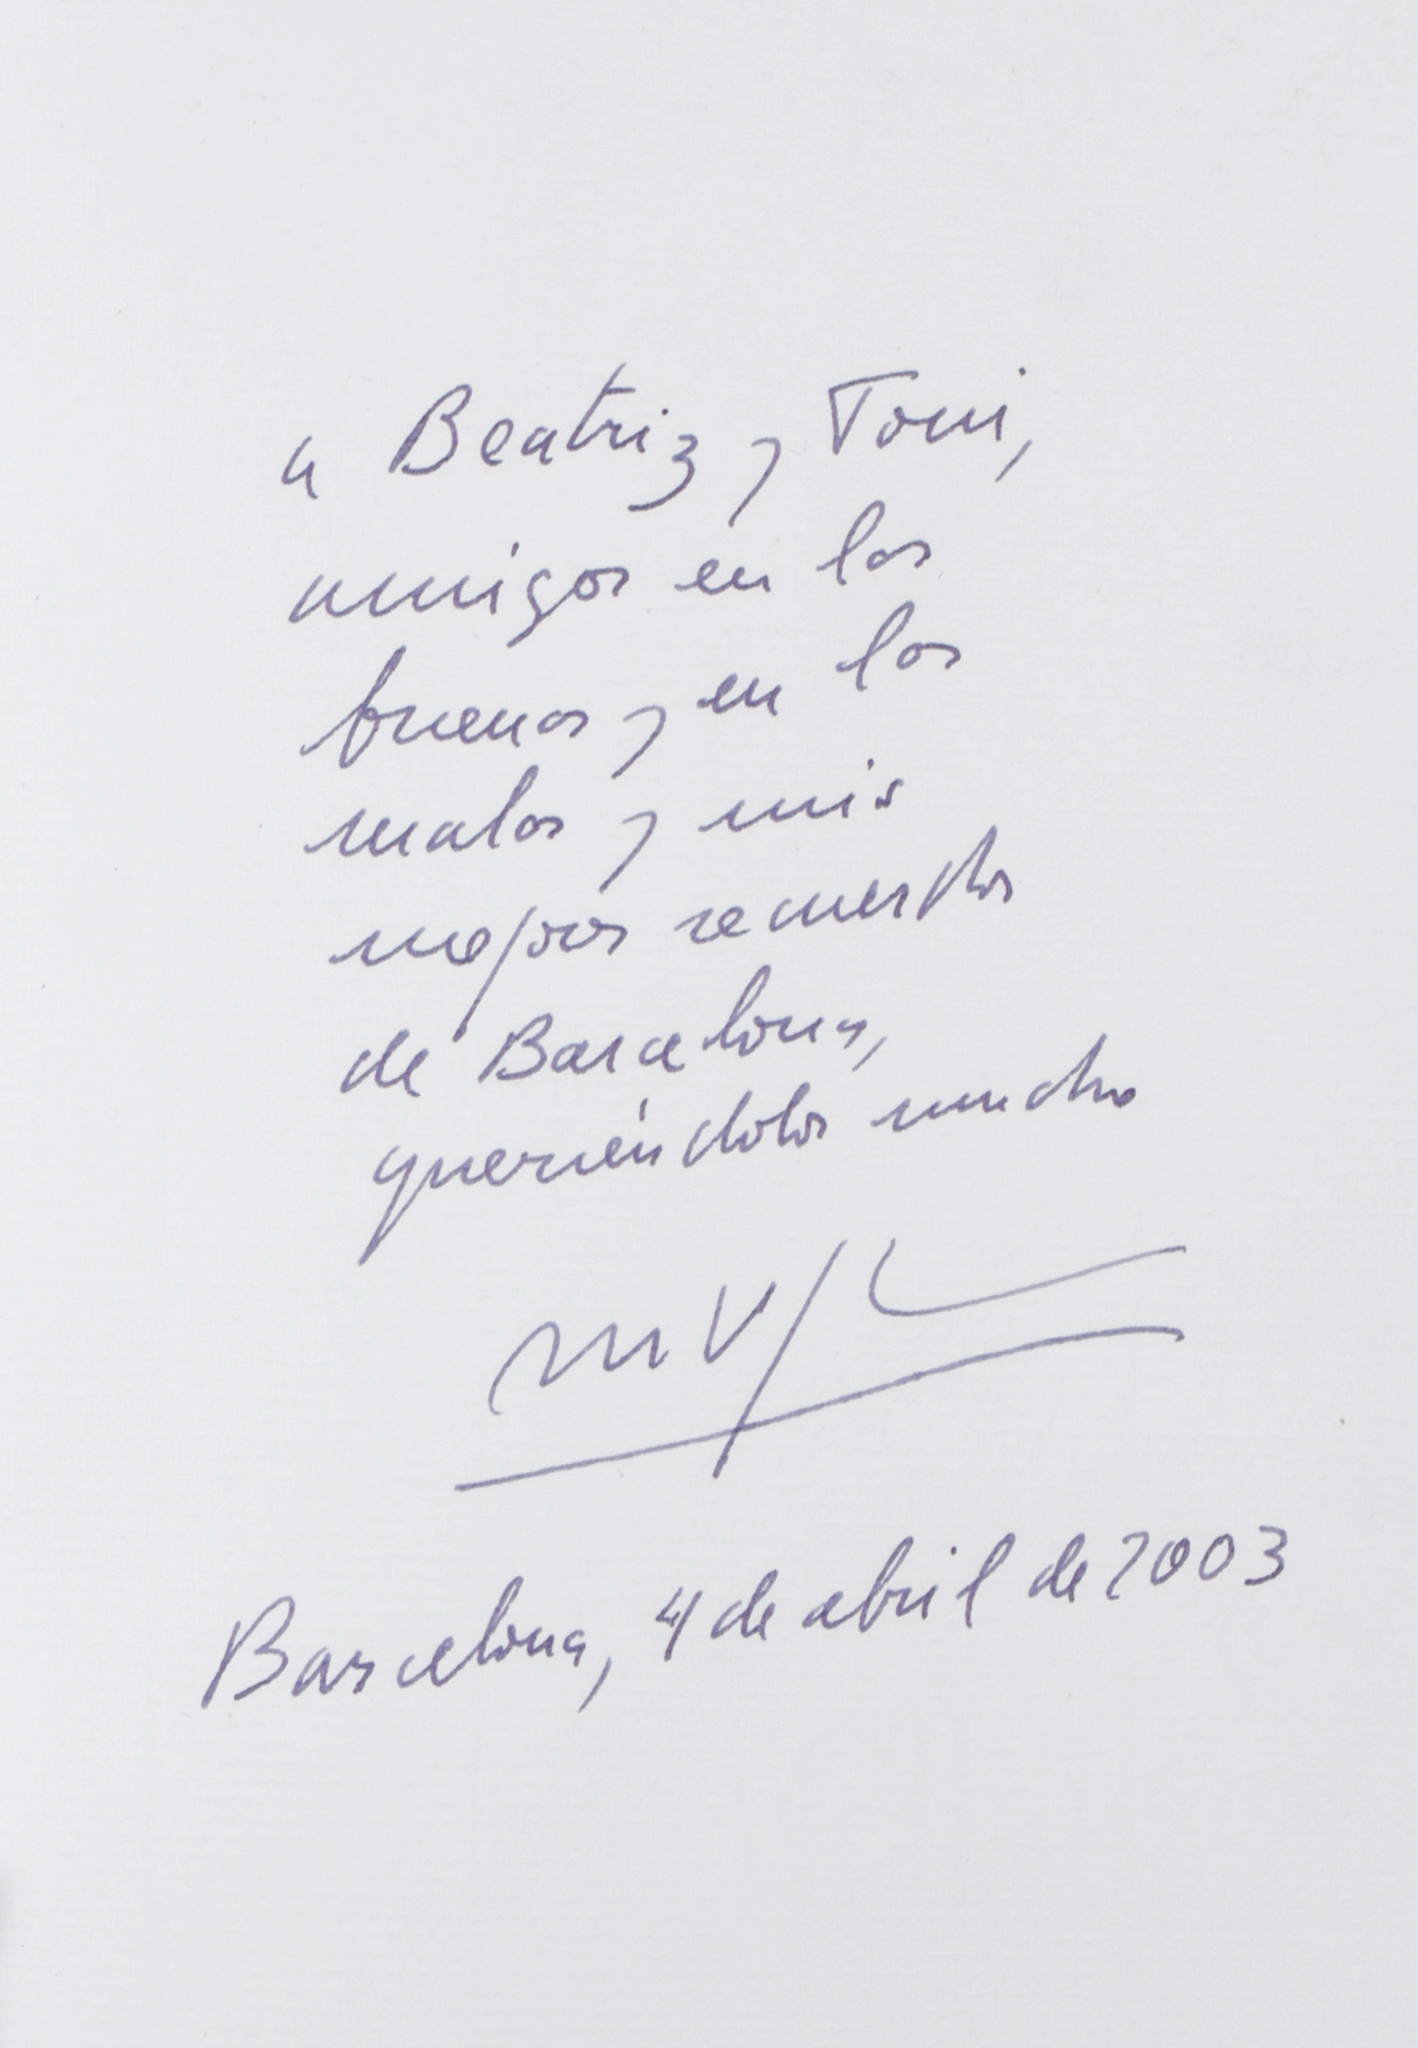 a Beatriz y Toni,
amigos en los
buenos y en los
malos y mis
mejores recuerdos
de Barcelona,
queriéndolos mucho
MVLl
Barcelona, 4 de abril de 2003